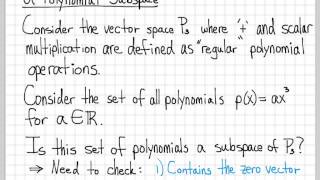 a Polynomial Subspace
Consider the vector space P₃ where '+' and scalar
multiplication are defined as "regular" polynomial
operations.
Consider the set of all polynomials p(x)=ax³
for a∈ℝ.
Is this set of polynomials a subspace of P₃?
⇒ Need to check: 1) Contains the zero vector